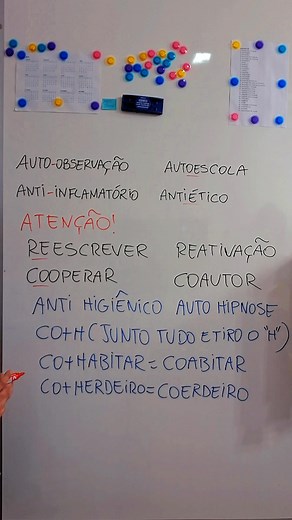 AUTO-OBSERVAÇÃO AUTOESCOLA
ANTI-INFLAMATÓRIO ANTIÉTICO
ATENÇÃO!
REESCREVER REATIVAÇÃO
COOPERAR COAUTOR
ANTI HIGIÊNICO AUTO HIPNOSE
CO+H (JUNTO TUDO E TIRO O "H")
CO+HABITAR=COABITAR
CO+HERDEIRO=COERDEIRO